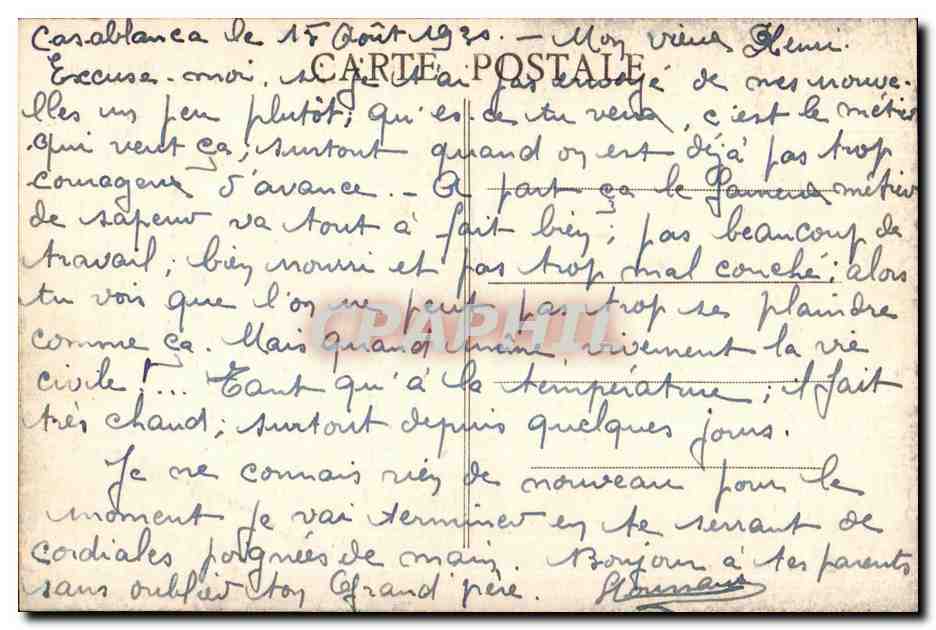 Casablanca le 15 Août 1930. - Mon vieux Henri.
CARTE POSTALE
Excuse-moi, si je t'ai pas envoyé de mes nouve-
lles un peu plutôt; qu'es-ce tu veux, c'est le métier
qui veut ça; surtout quand on est déjà pas trop
courageux d'avance. - A part ça le fameux métier
de sapeur va tout à fait bien; pas beaucoup de
travail; bien nourri et pas trop mal couché; alors
tu vois que l'on ne peut pas trop se plaindre
CPAPHIL
comme ça. Mais quand même, vivement la vie
civile!... Tant qu'à la température; il fait
très chaud; surtout depuis quelques jours.
Je ne connais rien de nouveau pour le
moment je vai terminer en te serrant de
cordiales poignées de main. Bonjour à tes parents
sans oublier ton Grand père.